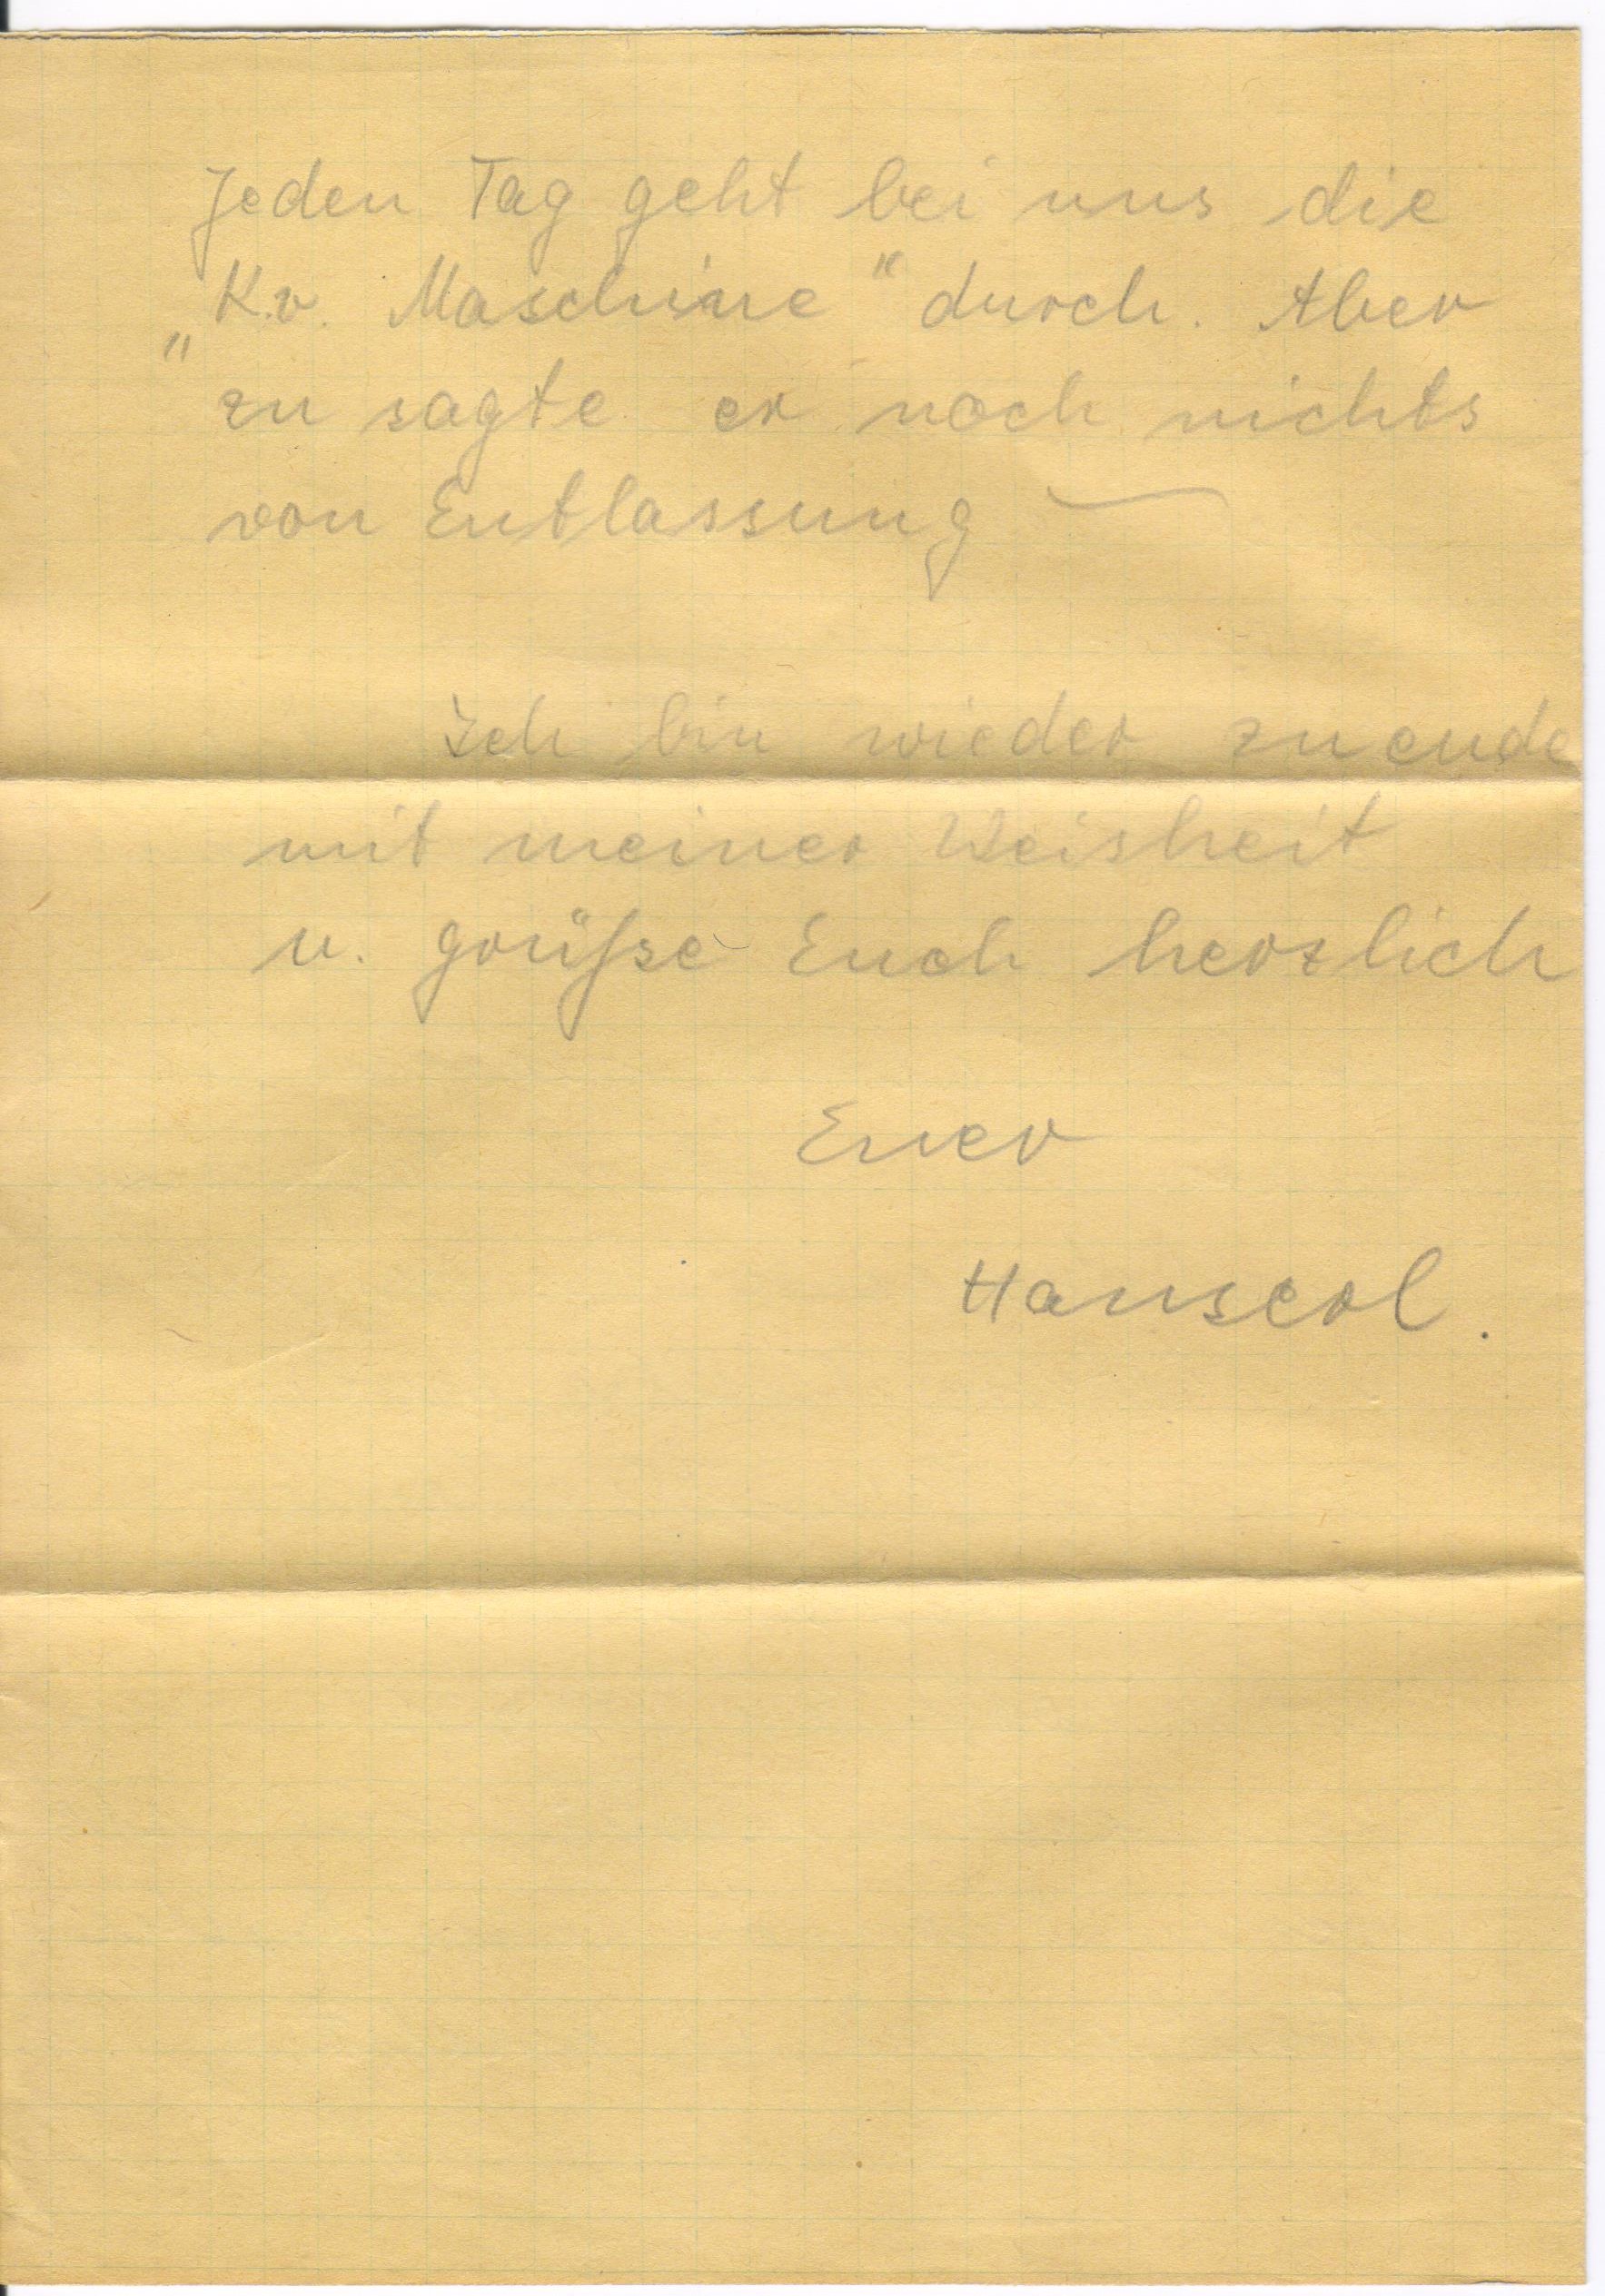 Jeden Tag geht bei uns die
„K.v. Maschine“ durch. Aber
zu sagte er noch nichts
von Entlassung —
Ich bin wieder zuende
mit meiner Weisheit
u. grüße Euch herzlich
Euer
Hanserl.